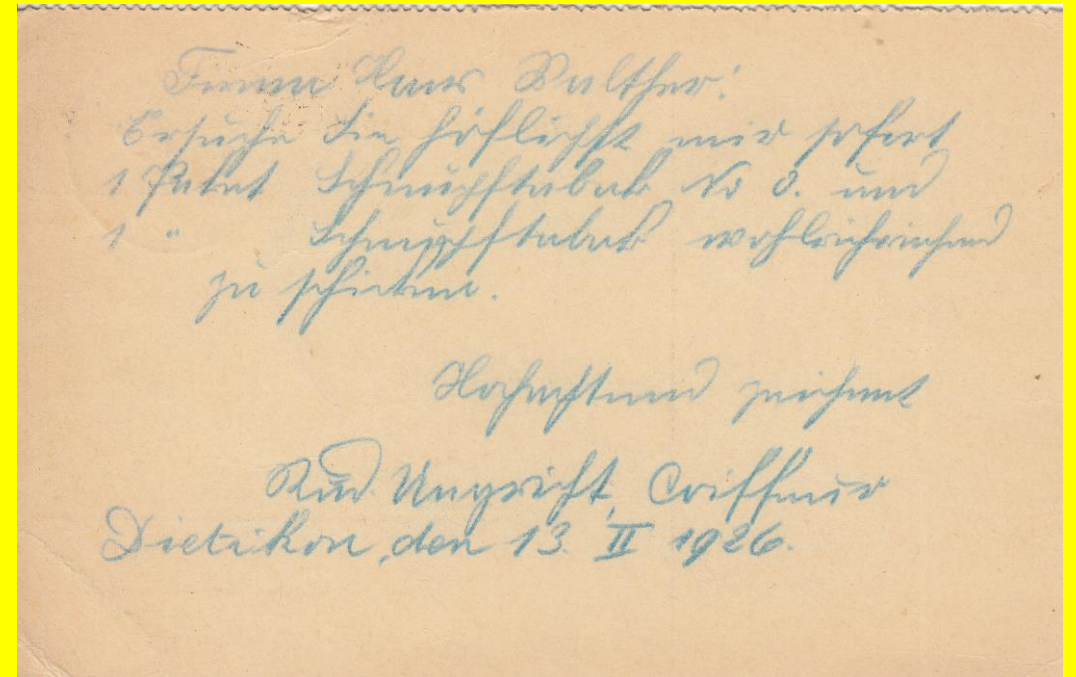 Firma Hans Walther!
Ersuche Sie höflichst mir sofort
1 Paket Schnupftabak No 0. und
1 " Schnupftabak wohlriechend
zu schicken.
Hochachtend zeichnet
Rud. Ungricht, Coiffeur
Dietikon, den 13. II 1926.